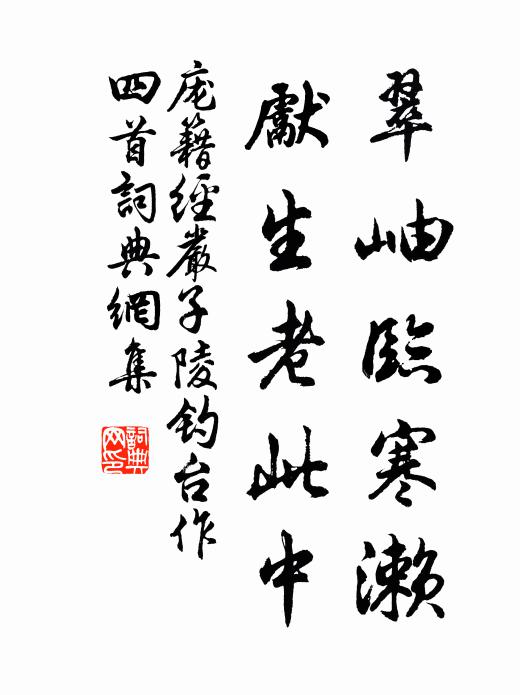 翠岫臨寒瀨
獻生老此中
庞籍經嚴子陵钓台作
四首詞典網集
詞典
网印